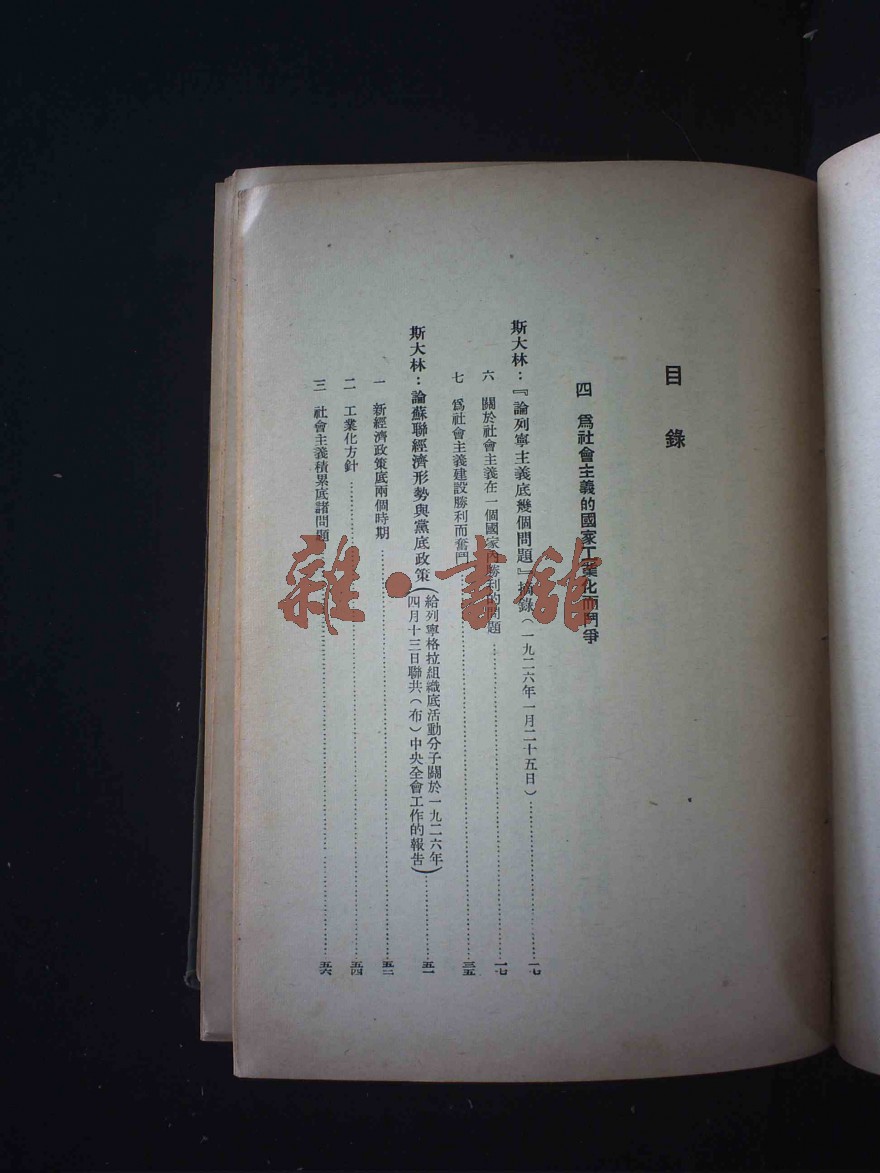 目錄
四 爲社會主義的國家工業化而鬥爭
斯大林：『論列寧主義底幾個問題』摘錄（一九二六年一月二十五日）……一七
六 關於社會主義在一個國家內勝利的問題……一七
七 爲社會主義建設勝利而奮鬥……三五
斯大林：論蘇聯經濟形勢與黨底政策（給列寧格拉組織底活動分子關於一九二六年四月十三日聯共（布）中央全會工作的報告）……五一
一 新經濟政策底兩個時期……五二
二 工業化方針……五四
三 社會主義積累底諸問題……五六
雜·書館